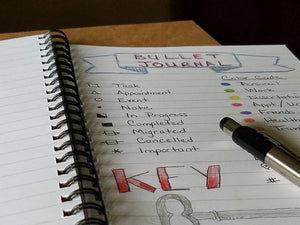 BULLET
JOURNAL
Task
Appointment
Event
Note
In Progress
Completed
Migrated
Cancelled
Important
Color Code
Personal
Work
Dissertation
Appt/
Friends
Health
KEY